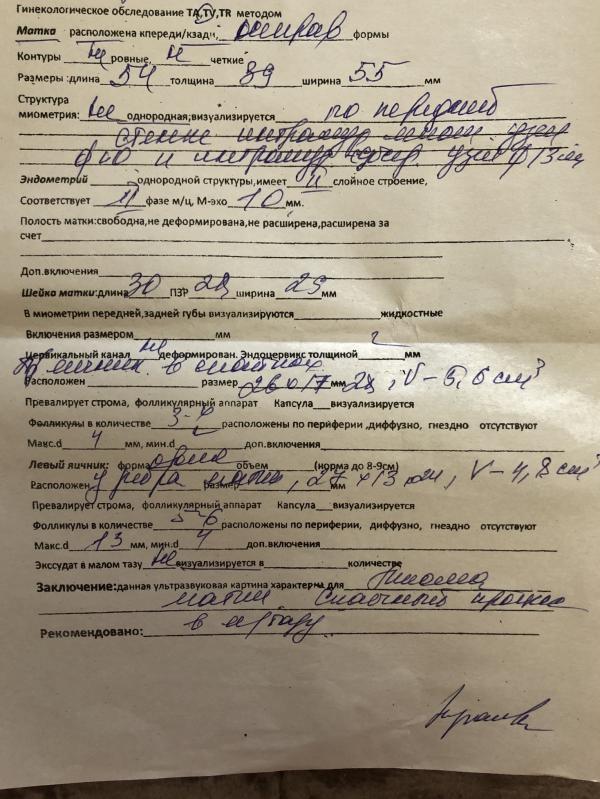 Гинекологическое обследование TA,TV,TR методом
Матка расположена кпереди/кзади, неправ формы
Контуры не ровные, не четкие
Размеры :длина 54 толщина 89 ширина 55 мм
Структура
миометрия: не однородная;визуализируется по передней
стенке интрамур
ф40 и интрамур узел ф13мм
Эндометрий однородной структуры,имеет II слойное строение,
Соответствует II фазе м/ц, М-эхо 10 мм.
Полость матки:свободна,не деформирована,не расширена,расширена за
счет
Доп.включения
Шейка матки:длина 30 ПЗР 28 ширина 25 мм
В миометрии передней,задней губы визуализируются жидкостные
Включения размером мм
Цервикальный канал не деформирован. Эндоцервикс толщиной 2 мм
Пр яичник в спайках
Расположен размер 26х17х28 мм, V-6,6см³
Превалирует строма, фолликулярный аппарат Капсула визуализируется
Фолликулы в количестве 3-4 расположены по периферии ,диффузно, гнездно отсутствуют
Макс.d 4 мм, мин.d доп.включения
Левый яичник: форма объем (норма до 8-9см)
Расположен у ребра матки, размер 27х13х24 мм, V-4,8см³
Превалирует строма, фолликулярный аппарат Капсула визуализируется
Фолликулы в количестве 5-6 расположены по периферии, диффузно, гнездно отсутствуют
Макс.d 13 мм, мин.d 4 доп.включения
Экссудат в малом тазу не визуализируется в количестве
Заключение:данная ультразвуковая картина характерна для Миома
матки. Спаечный процесс
Рекомендовано: в м/тазу